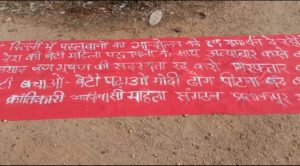 दिल्ली में पहलवानो का आन्दोलन को हम समर्थन देते
देश की बेटी महिला पहलवानो के साथ अत्याचार करने
बृज भूषण की सदस्यता रद्द करो गिरफ्तार
बेटी बचाओ - बेटी पढ़ाओ मोदी ढोंग पिटना बंद
क्रांतिकारी आदिवासी महिला संगठन